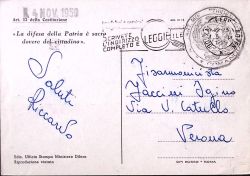 4 NOV. 1959
Art. 52 della Costituzione
«La difesa della Patria è sacro
dovere del cittadino».
SCRIVETE
L'INDIRIZZO
COMPLETO E LEGGIBILE
Saluti
Riccardo
Fisarmonicista
Zaccini Igino
Via V. Catullo
Verona
Ediz. Ufficio Stampa Ministero Difesa
Riproduzione vietata